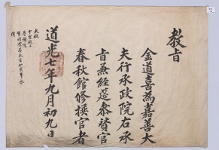 教旨
金道喜爲嘉善大
夫行承政院右承
旨兼經筵叅贊官
春秋館修撰官者
道光七年九月初九日